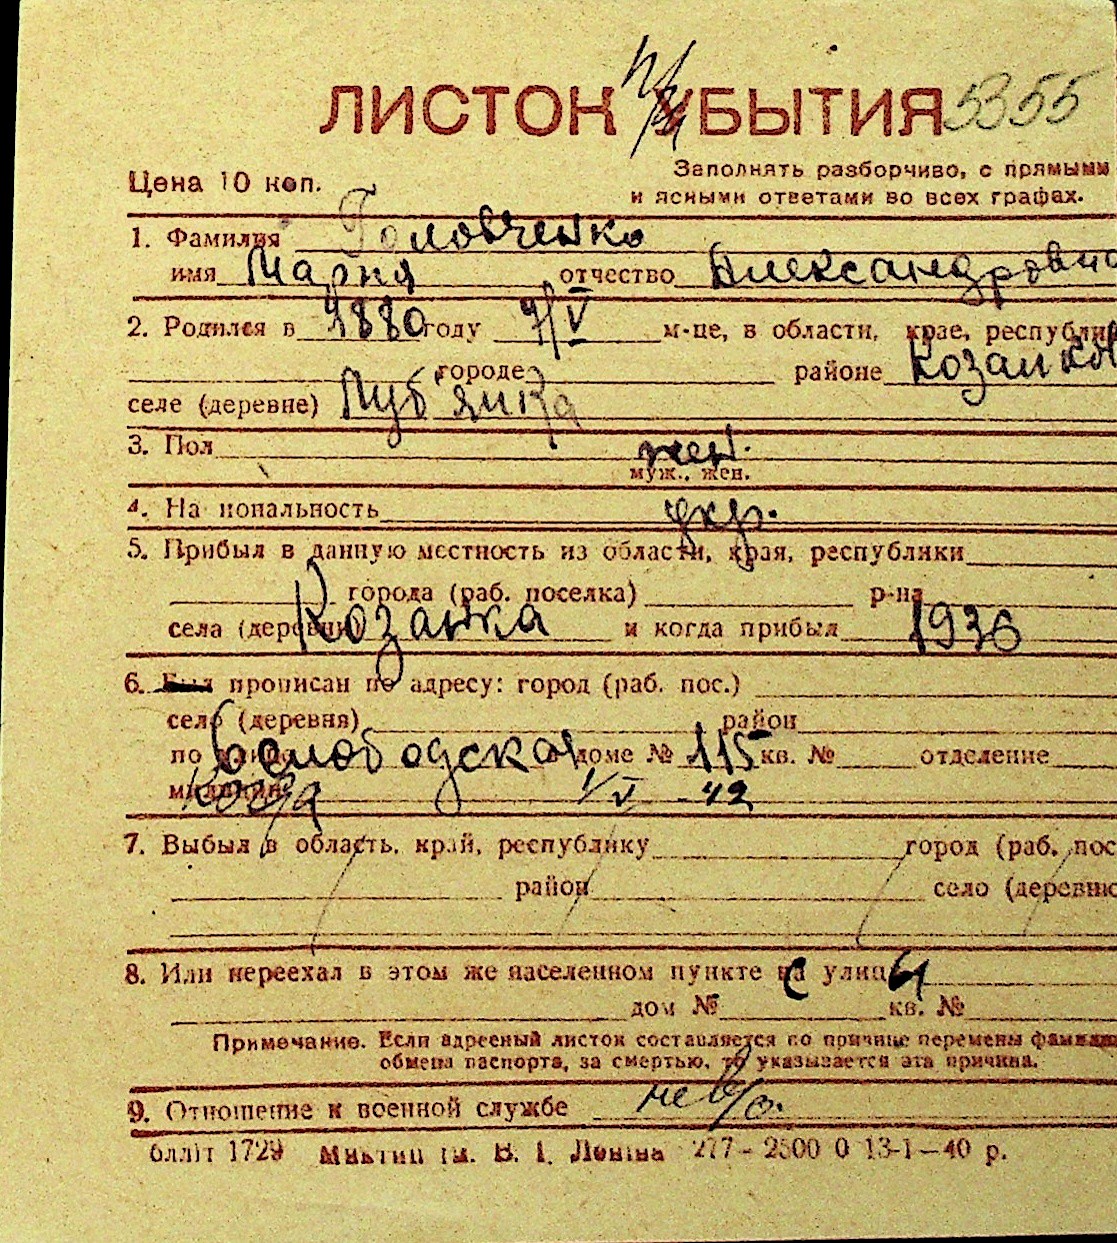 ЛИСТОК УБЫТИЯ 5355
Цена 10 коп.
Заполнять разборчиво, с прямыми
и ясными ответами во всех графах.
1. Фамилия Головченко
имя Мария отчество Александровна
2. Родился в 1880 году 9/V м-це, в области, крае, республике
городе районе Козанка
селе (деревне) Луб'янка
3. Пол жен.
муж., жен.
4. Национальность укр.
5. Прибыл в данную местность из области, края, республики
города (раб. поселка) р-на
села (деревни) Козанка и когда прибыл 1936
6. Был прописан по адресу: город (раб. пос.)
село (деревня) район
по улице Слободская в доме № 115 кв. № отделение
милиции когда 1/V - 42
7. Выбыл в область, край, республику город (раб. пос
район село (деревню
8. Или переехал в этом же населенном пункте с улицы
дом № кв. №
Примечание. Если адресный листок составляется по причине перемены фамилии
обмена паспорта, за смертью, то указывается эта причина.
9. Отношение к военной службе не в/о.
блліт 1729 Миктип ім. В. І. Леніна 277 - 2500 0 13-1-40 р.